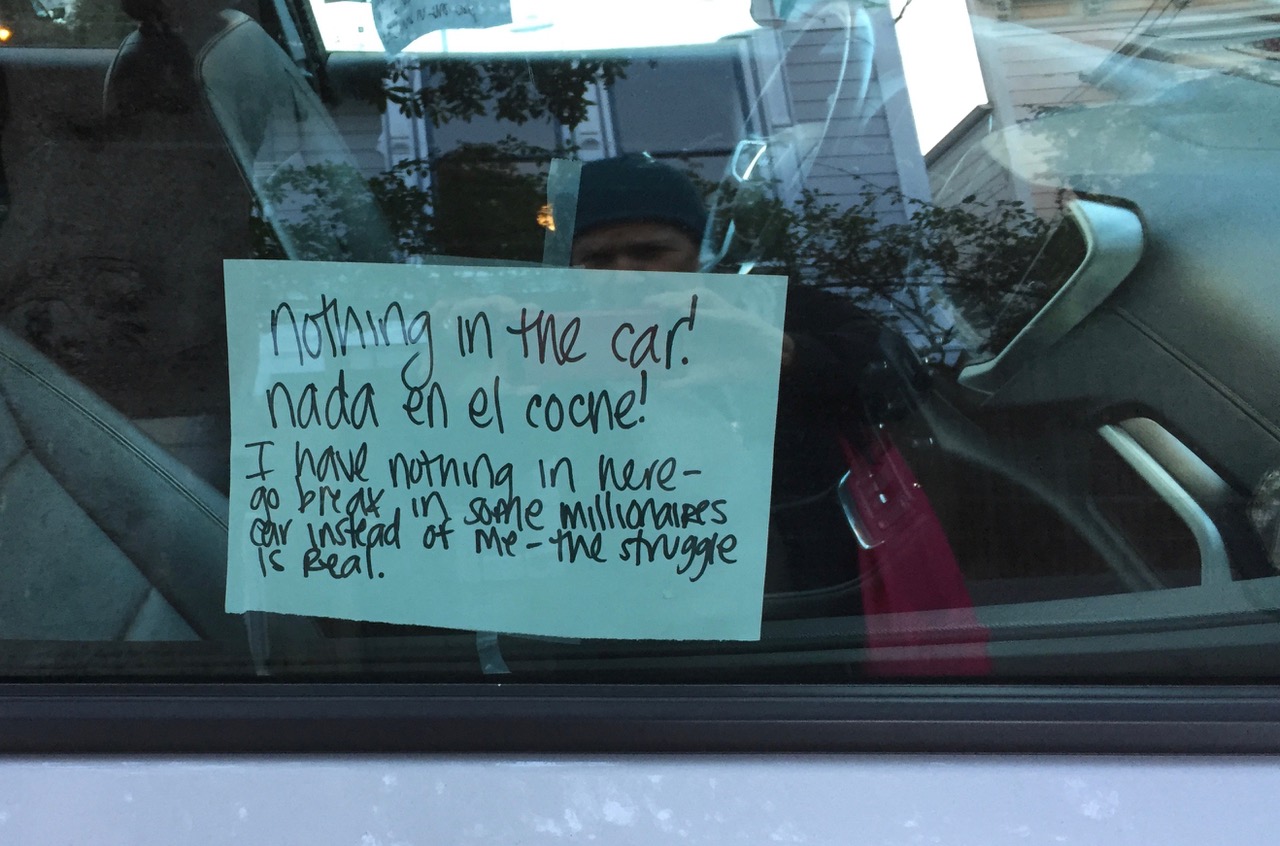 nothing in the car!
nada en el coche!
I have nothing in here-
go break in some millionaires
car instead of me - the struggle
is Real.